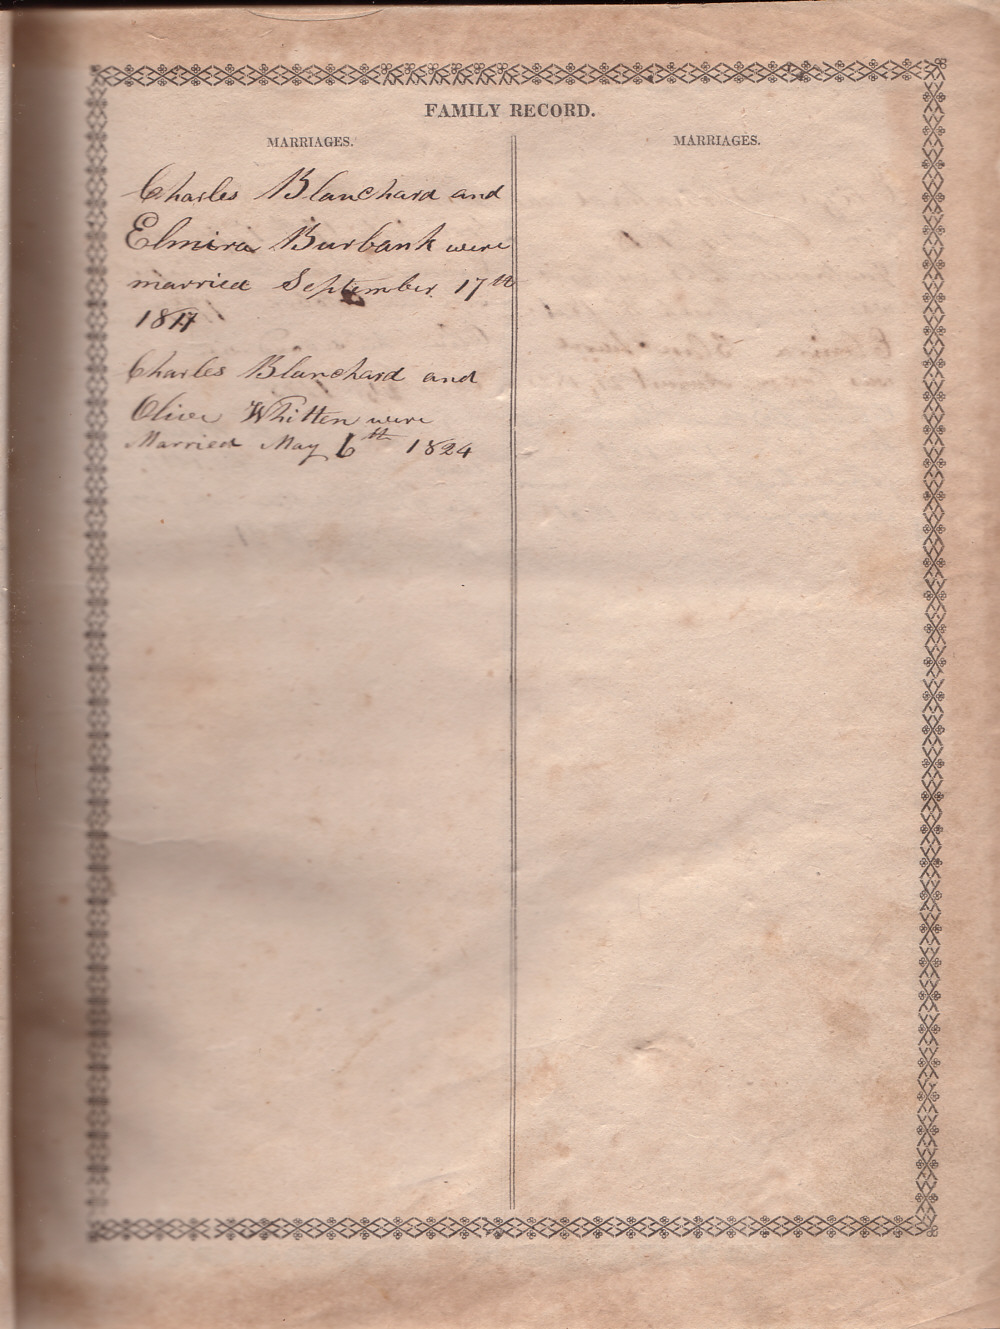 FAMILY RECORD.
MARRIAGES.
Charles Blanchard and
Elmira Burbank were
married September 17th
Charles Blanchard and
Olive Whitten were
Married May 6th 1824
MARRIAGES.